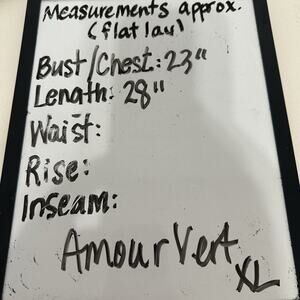 Measurements approx.
(flat lay)
Bust/Chest: 23"
Length: 28"
Waist:
Rise:
Inseam:
Amour Vert
XL